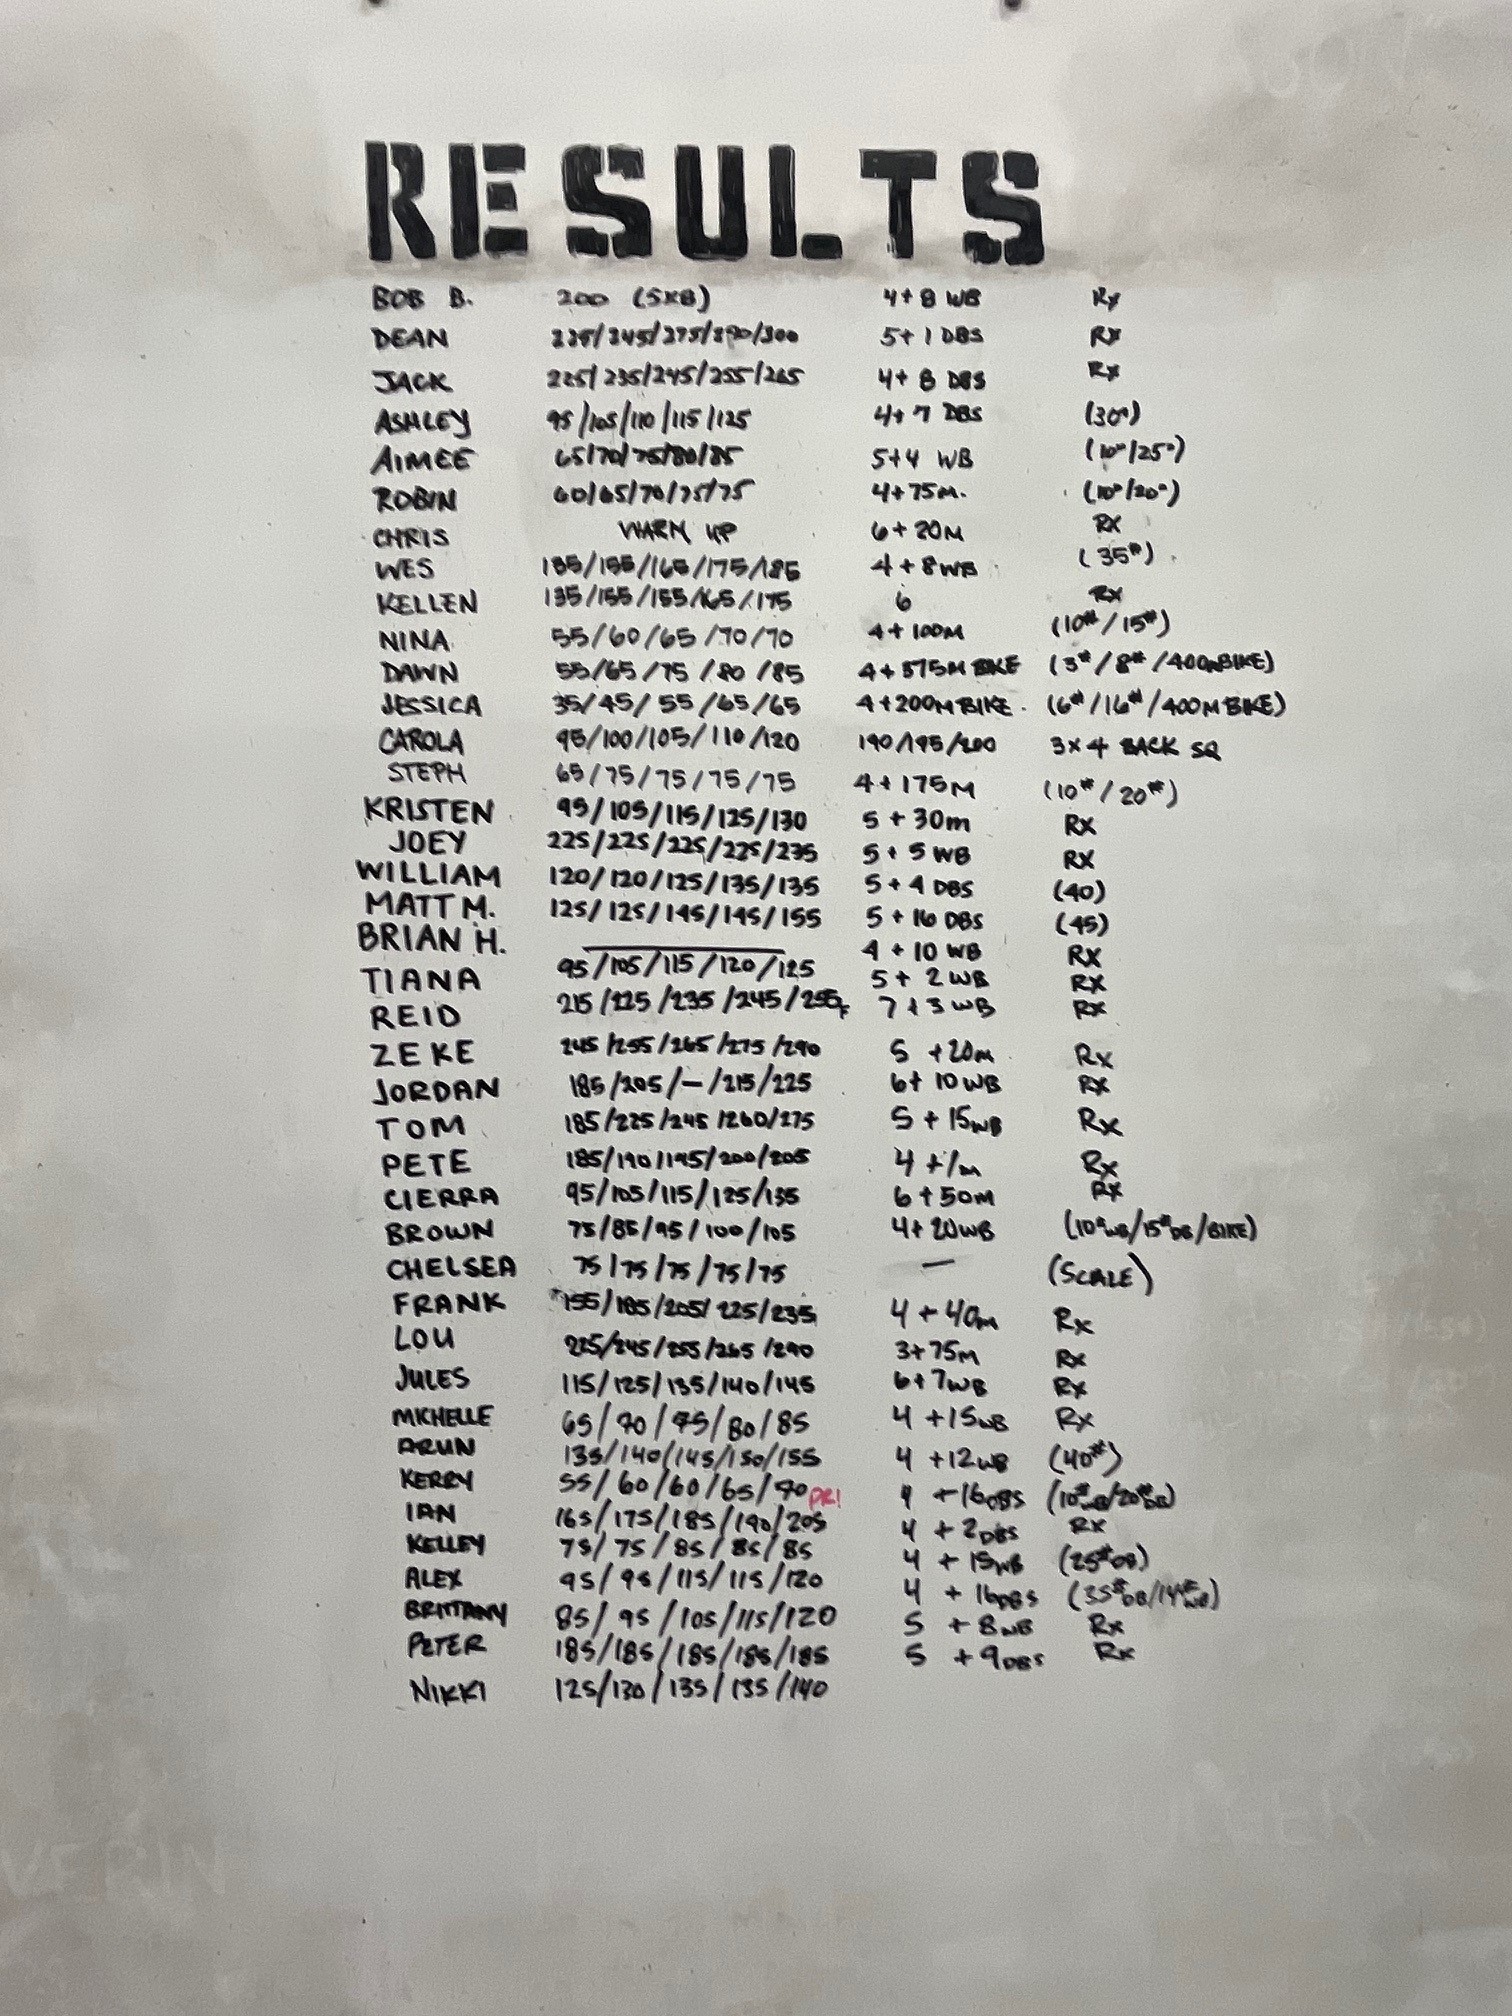 RESULTS
BOB B. 200 (5X8) 4+8 WB Rx
DEAN 225/245/275/290/300 5+1 DBS Rx
JACK 225/235/245/255/265 4+8 DBS Rx
ASHLEY 95/105/110/115/125 4+7 DBS (30#)
AIMEE 65/70/75/80/85 5+4 WB (10#/25#)
ROBIN 60/65/70/75/75 4+75M. (10#/20#)
CHRIS WARM UP 6+20M RX
WES 135/155/165/175/185 4+8WB (35#)
KELLEN 135/155/155/165/175 6 RX
NINA 55/60/65/70/70 4+100M (10#/15#)
DAWN 55/65/75/80/85 4+375M BIKE (3#/8#/400MBIKE)
JESSICA 35/45/55/65/65 4+200M BIKE (6#/16#/400M BIKE)
CAROLA 95/100/105/110/120 190/195/200 3x4 BACK SQ
STEPH 65/75/75/75/75 4+175M (10#/20#)
KRISTEN 95/105/115/125/130 5+30m RX
JOEY 225/225/225/225/235 5+5 WB RX
WILLIAM 120/120/125/135/135 5+4 DBS (40)
MATT M. 125/125/145/145/155 5+16 DBS (45)
BRIAN H. — 4+10 WB RX
TIANA 95/105/115/120/125 5+2 WB RX
REID 215/225/235/245/255F 7+3 WB RX
ZEKE 245/255/265/275/290 5+20m Rx
JORDAN 185/205/—/215/225 6+10 WB Rx
TOM 185/225/245/260/275 5+15WB Rx
PETE 185/190/195/200/205 4+1m Rx
CIERRA 95/105/115/125/135 6+50M Rx
BROWN 75/85/95/100/105 4+20WB (10#WB/15#DB/BIKE)
CHELSEA 75/75/75/75/75 — (SCALE)
FRANK 155/185/205/225/235 4+40m Rx
LOU 225/245/255/265/290 3+75M Rx
JULES 115/125/135/140/145 6+7WB Rx
MICHELLE 65/70/75/80/85 4+15WB Rx
ARUN 135/140/145/150/155 4+12WB (40#)
KERRY 55/60/60/65/70 PR! 4+16DBS (10#WB/20#DB)
IAN 165/175/185/190/205 4+2DBS Rx
KELLEY 75/75/85/85/85 4+15WB (25#DB)
ALEX 95/95/115/115/120 4+16DBS (35#DB/14#WB)
BRITTANY 85/95/105/115/120 5+8WB Rx
PETER 185/185/185/185/185 5+9DBS Rx
NIKKI 125/130/135/135/140